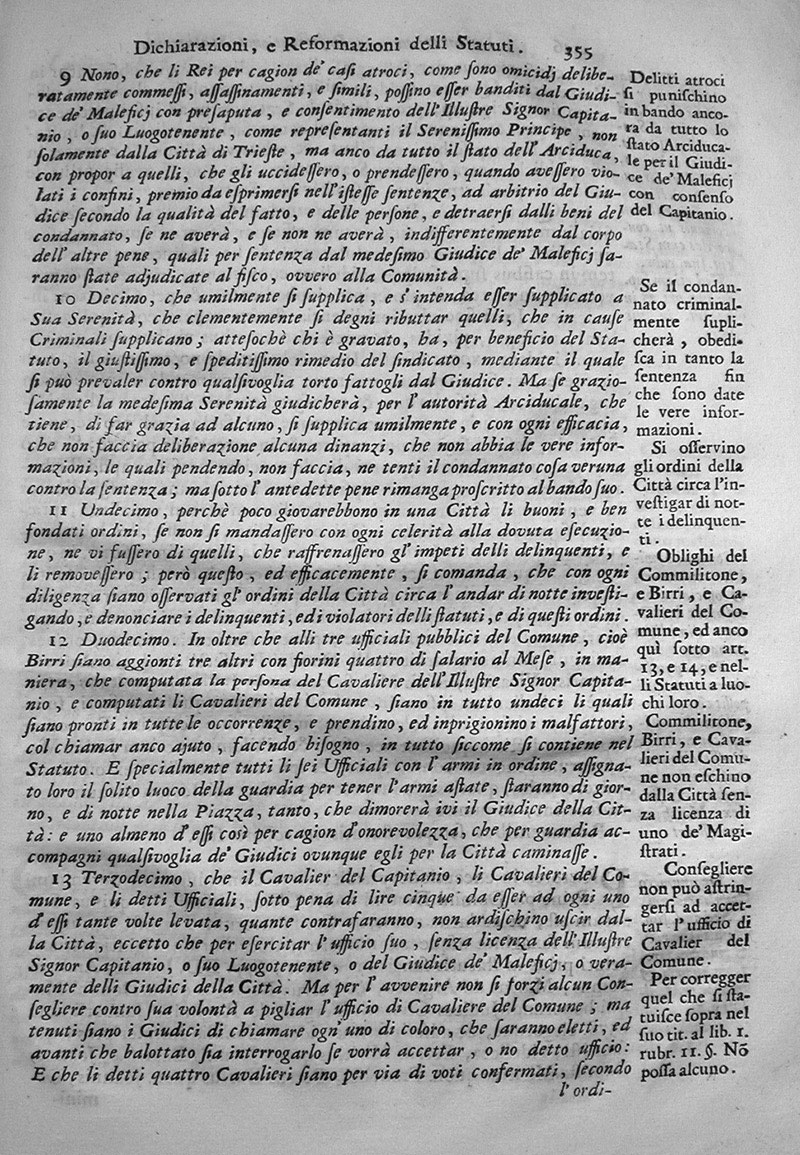 Dichiarazioni, e Reformazioni delli Statuti. 355
9 Nono, che li Rei per cagion de' casi atroci, come sono omicidj delibe-
ratamente commessi, assassinamenti, e simili, possino esser banditi dal Giudi-
ce de' Maleficj con presaputa, e consentimento dell' Illustre Signor Capita-
nio, o suo Luogotenente, come representanti il Serenissimo Principe, non
solamente dalla Città di Trieste, ma anco da tutto il stato dell' Arciduca,
con propor a quelli, che gli uccidessero, o prendessero, quando avessero vio-
lati i confini, premio da esprimersi nell' istesse sentenze, ad arbitrio del Giu-
dice secondo la qualità del fatto, e delle persone, e detraersi dalli beni del
condannato, se ne averà, e se non ne averà, indifferentemente dal corpo
dell' altre pene, quali per sentenza dal medesimo Giudice de' Maleficj sa-
ranno state adjudicate al fisco, ovvero alla Comunità.
10 Decimo, che umilmente si supplica, e s' intenda esser supplicato a
Sua Serenità, che clementemente si degni ributtar quelli, che in cause
Criminali supplicano; attesochè chi è gravato, ha, per beneficio del Sta-
tuto, il giustissimo, e speditissimo rimedio del sindicato, mediante il quale
si può prevaler contro qualsivoglia torto fattogli dal Giudice. Ma se grazio-
samente la medesima Serenità giudicherà, per l' autorità Arciducale, che
tiene, di far grazia ad alcuno, si supplica umilmente, e con ogni efficacia,
che non faccia deliberazione alcuna dinanzi, che non abbia le vere infor-
mazioni, le quali pendendo, non faccia, ne tenti il condannato cosa veruna
contro la sentenza; ma sotto l' antedette pene rimanga proscritto al bando suo.
11 Undecimo, perchè poco giovarebbono in una Città li buoni, e ben
fondati ordini, se non si mandassero con ogni celerità alla dovuta esecuzio-
ne, ne vi fussero di quelli, che raffrenassero gl' impeti delli delinquenti, e
li removessero; però questo, ed efficacemente, si comanda, che con ogni
diligenza siano osservati gl' ordini della Città circa l' andar di notte investi-
gando, e denonciare i delinquenti, ed i violatori delli statuti, e di questi ordini.
12 Duodecimo. In oltre che alli tre ufficiali pubblici del Comune, cioè
Birri siano aggionti tre altri con fiorini quattro di salario al Mese, in ma-
niera, che computata la persona del Cavaliere dell' Illustre Signor Capita-
nio, e computati li Cavalieri del Comune, siano in tutto undeci li quali
siano pronti in tutte le occorrenze, e prendino, ed inprigionino i malfattori,
col chiamar anco ajuto, facendo bisogno, in tutto siccome si contiene nel
Statuto. E specialmente tutti li sei Ufficiali con l' armi in ordine, assigna-
to loro il solito luoco della guardia per tener l' armi astate, staranno di gior-
no, e di notte nella Piazza, tanto, che dimorerà ivi il Giudice della Cit-
tà: e uno almeno d' essi così per cagion d' onorevolezza, che per guardia ac-
compagni qualsivoglia de' Giudici ovunque egli per la Città caminasse.
13 Terzodecimo, che il Cavalier del Capitanio, li Cavalieri del Co-
mune, e li detti Ufficiali, sotto pena di lire cinque da esser ad ogni uno
d' essi tante volte levata, quante contrafaranno, non ardischino uscir dal-
la Città, eccetto che per esercitar l' ufficio suo, senza licenza dell' Illustre
Signor Capitanio, o suo Luogotenente, o del Giudice de' Maleficj, o vera-
mente delli Giudici della Città. Ma per l' avvenire non si forzi alcun Con-
segliere contro sua volontà a pigliar l' ufficio di Cavaliere del Comune; ma
tenuti siano i Giudici di chiamare ogn' uno di coloro, che saranno eletti, ed
avanti che balottato sia interrogarlo se vorrà accettar, o no detto ufficio:
E che li detti quattro Cavalieri siano per via di voti confermati, secondo
l' ordi-
Delitti atroci
si punischino
in bando anco-
ra da tutto lo
stato Arciduca-
le per il Giudi-
ce de' Maleficj
con consenso
del Capitanio.
Se il condan-
nato criminal-
mente supli-
cherà, obedi-
sca in tanto la
sentenza fin
che sono date
le vere infor-
mazioni.
Si osservino
gli ordini della
Città circa l'in-
vestigar di not-
te i delinquen-
ti.
Oblighi del
Commilitone,
e Birri, e Ca-
valieri del Co-
mune, ed anco
quì sotto art.
13, e 14, e nel-
li Statuti a luo-
chi loro.
Commilitone,
Birri, e Cava-
lieri del Comu-
ne non eschino
dalla Città sen-
za licenza di
uno de' Magi-
strati.
Consegliere
non può astrin-
gersi ad accet-
tar l'ufficio di
Cavalier del
Comune.
Per corregger
quel che si sta-
tuisce sopra nel
suo tit. al lib. 1.
rubr. 11. §. Nō
possa alcuno.